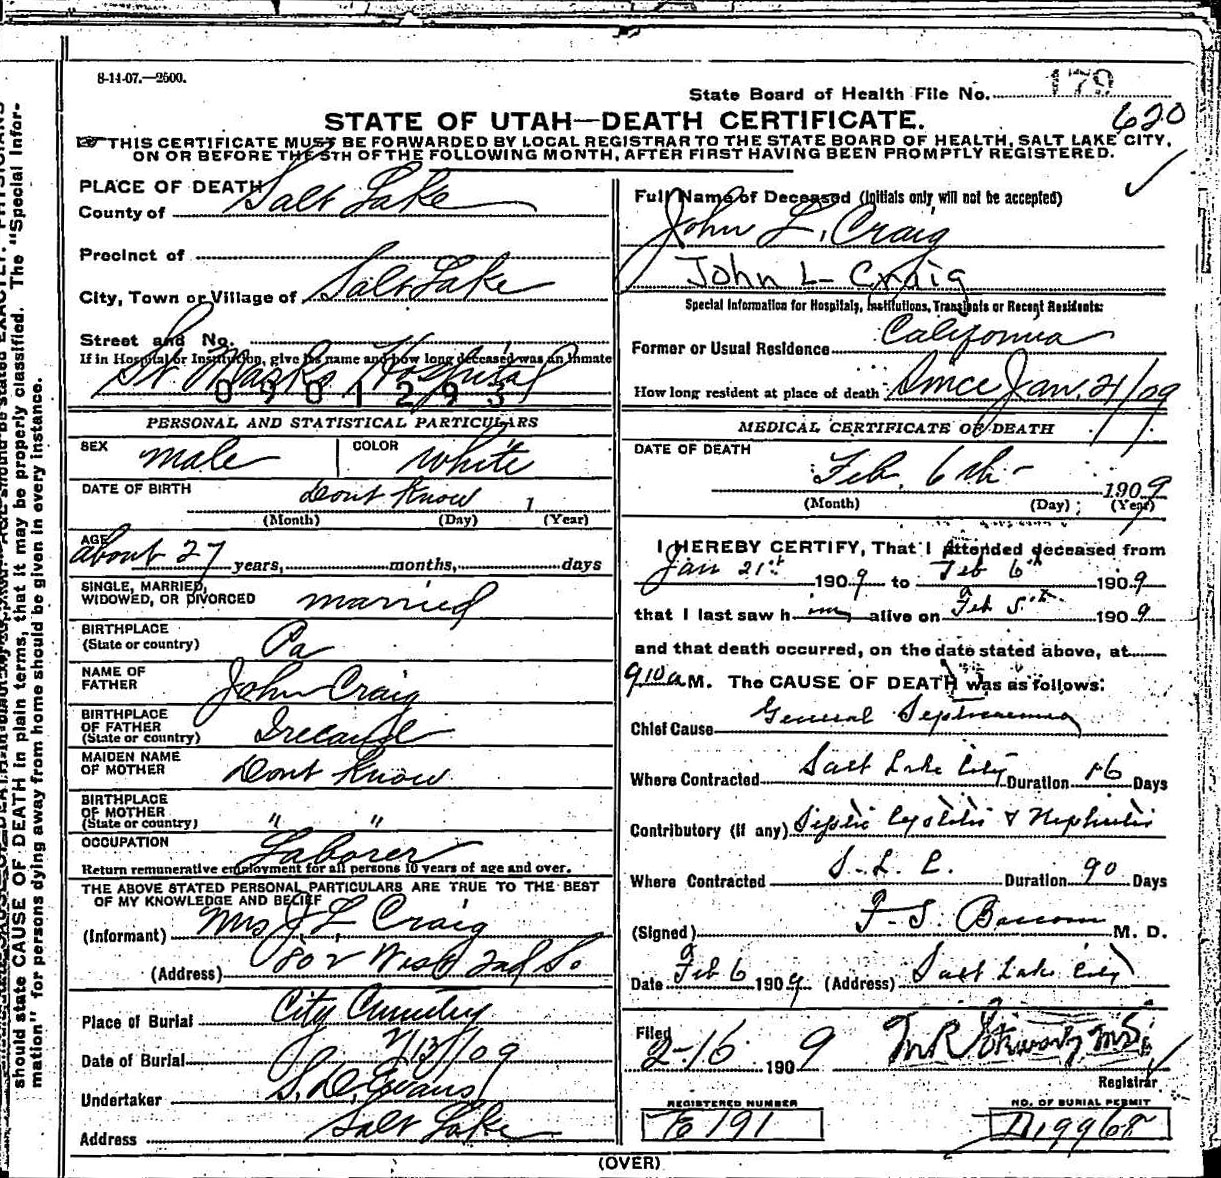 8-11-07.—2500.
State Board of Health File No. 179
620
STATE OF UTAH—DEATH CERTIFICATE.
☞THIS CERTIFICATE MUST BE FORWARDED BY LOCAL REGISTRAR TO THE STATE BOARD OF HEALTH, SALT LAKE CITY,
ON OR BEFORE THE 5TH OF THE FOLLOWING MONTH, AFTER FIRST HAVING BEEN PROMPTLY REGISTERED.
PLACE OF DEATH
County of Salt Lake
Precinct of
City, Town or Village of Salt Lake
Street and No.
If in Hospital or Institution, give its name and how long deceased was an inmate
St Marks Hospital
0901293
PERSONAL AND STATISTICAL PARTICULARS
SEX male COLOR white
DATE OF BIRTH Dont Know 1
(Month) (Day) (Year)
AGE
about 27 years, months, days
SINGLE, MARRIED,
WIDOWED, OR DIVORCED married
BIRTHPLACE
(State or country) Pa
NAME OF
FATHER John Craig
BIRTHPLACE
OF FATHER
(State or country) Ireland
MAIDEN NAME
OF MOTHER Dont Know
BIRTHPLACE
OF MOTHER
(State or country) " "
OCCUPATION Laborer
Return remunerative employment for all persons 10 years of age and over.
THE ABOVE STATED PERSONAL PARTICULARS ARE TRUE TO THE BEST
OF MY KNOWLEDGE AND BELIEF
(Informant) Mrs J. L. Craig
(Address) 802 West 2nd So.
Place of Burial City Cemetery
Date of Burial 2/13/09
Undertaker S. D. Evans
Address Salt Lake
Full Name of Deceased (Initials only will not be accepted)
John L. Craig
John L Craig
Special Information for Hospitals, Institutions, Transients or Recent Residents:
Former or Usual Residence California
How long resident at place of death Since Jan. 21/09
MEDICAL CERTIFICATE OF DEATH
DATE OF DEATH
Feb. 6th 1909
(Month) (Day) (Year)
I HEREBY CERTIFY, That I attended deceased from
Jan 21st 1909 to Feb 6th 1909
that I last saw him alive on Feb 5th 1909
and that death occurred, on the date stated above, at
910a M. The CAUSE OF DEATH was as follows:
Chief Cause General Septicaemia
Where Contracted Salt Lake City Duration 16 Days
Contributory (if any) Septic Cystitis & Nephritis
Where Contracted S. L. C. Duration 90 Days
(Signed) F. S. Bascom M. D.
Date Feb 6 1909 (Address) Salt Lake City
Filed
2-16 1909
Registrar
REGISTERED NUMBER
E 191
NO. OF BURIAL PERMIT
D19968
(OVER)
should state CAUSE OF DEATH in plain terms, that it may be properly classified. The "Special Infor-
mation" for persons dying away from home should be given in every instance.